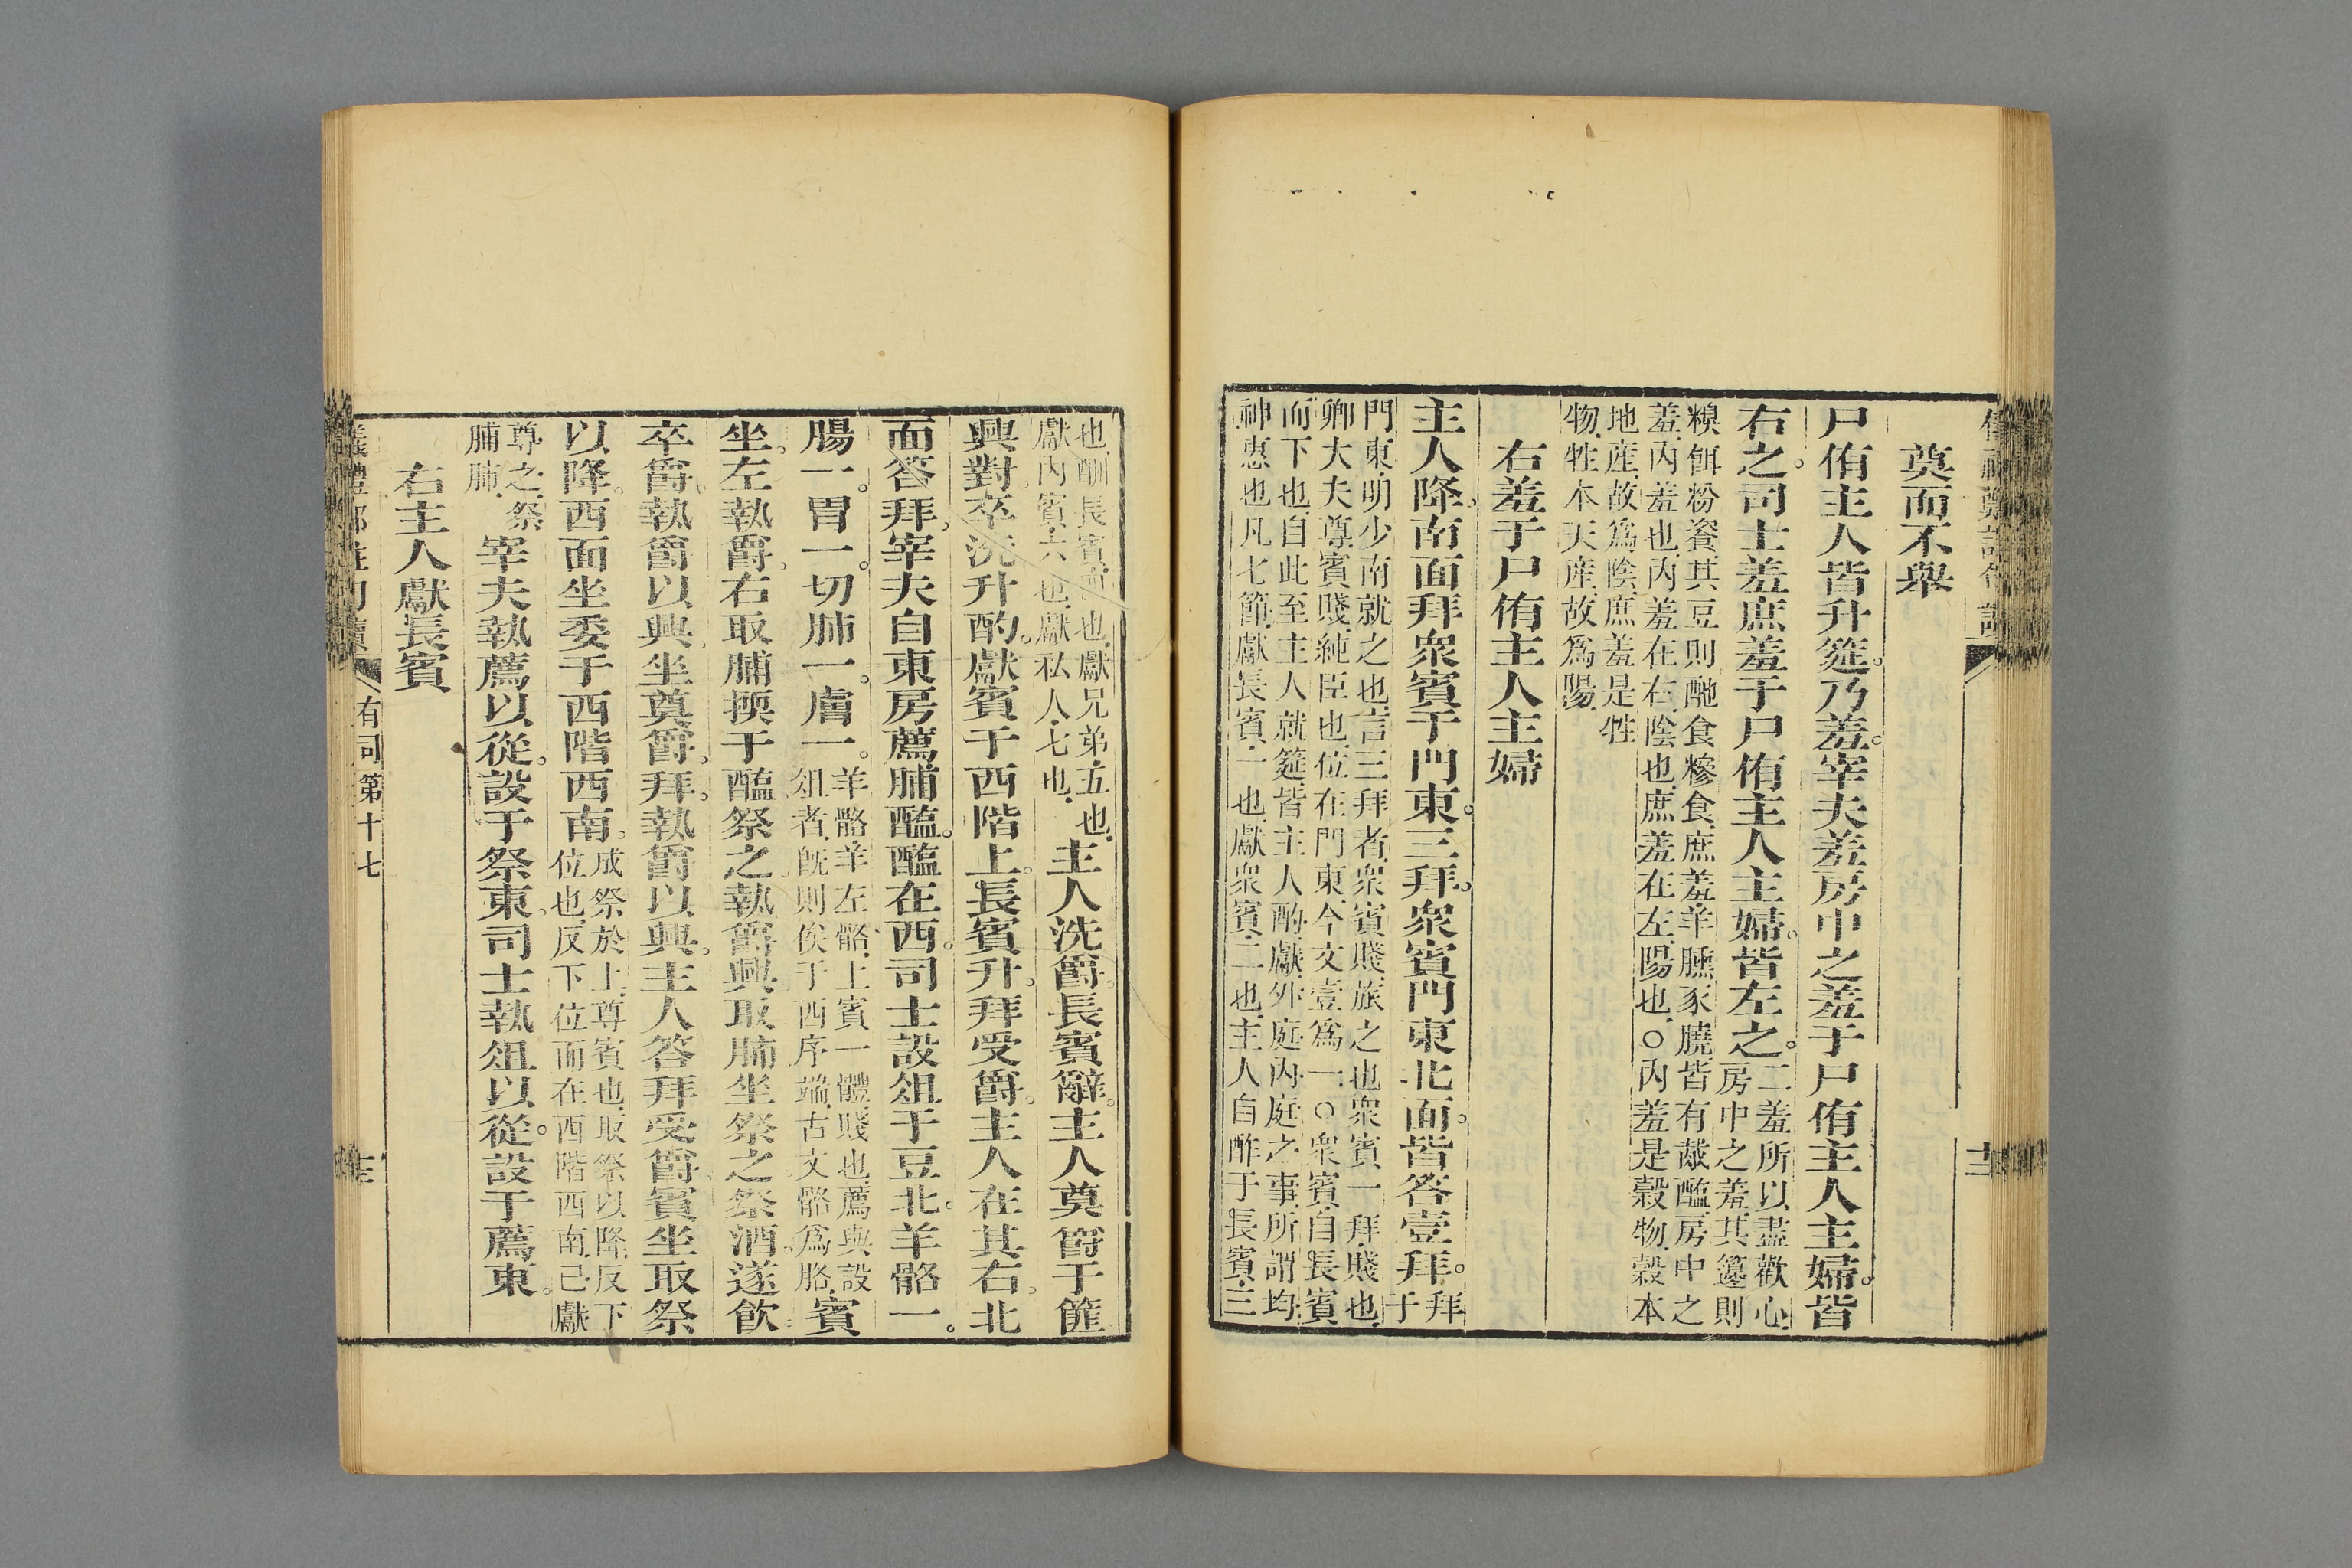 奠而不舉
尸侑主人皆升筵。乃羞。宰夫羞房中之羞于尸侑主人主婦。皆
右之。司士羞庶羞于尸侑主人主婦。皆左之。二羞所以盡歡心。
房中之羞。其籩則
糗餌粉餈。其豆則酏食糝食。庶羞。羊臐豕膮。皆有胾醢。房中之
羞。內羞也。內羞在右。陰也。庶羞在左。陽也。○內羞是穀物。穀本
地産。故爲陰。庶羞是牲
物。牲本天産。故爲陽。
右羞于尸侑主人主婦
主人降。南面拜衆賓于門東。三拜。衆賓門東北面。皆答壹拜。拜
于
門東。明少南就之也。言三拜者。衆賓賤。旅之也。衆賓一拜。賤也。
卿大夫尊。賓賤。純臣也。位在門東。今文壹爲一。○衆賓。自長賓
而下也。自此至主人就筵。皆主人酌獻外庭內庭之事。所謂均
神惠也。凡七節。獻長賓一也。獻衆賓二也。主人自酢于長賓三
也。酬長賓四也。獻兄弟五也。
獻內賓六也。獻私人七也。主人洗爵。長賓辭。主人奠爵于篚。
興對。卒洗。升酌。獻賓于西階上。長賓升。拜受爵。主人在其右。北
面答拜。宰夫自東房薦脯醢。醢在西。司士設俎于豆北。羊骼一。
腸一。胃一。切肺一。膚一。羊骼。羊左骼。上賓一體。賤也。薦與設
俎者。旣則俟于西序端。古文骼爲胳。賓
坐。左執爵。右取脯。擩于醢。祭之。執爵興。取肺。坐祭之。祭酒。遂飮。
卒爵。執爵以興。坐奠爵。拜。執爵以興。主人答拜。受爵。賓坐取祭
以降。西面坐委于西階西南。成祭於上。尊賓也。取祭以降。反下
位也。反下位而在西階西南。已獻
尊之。祭
脯肺。宰夫執薦以從。設于祭東。司士執俎以從。設于薦東。
右主人獻長賓
有司第十七